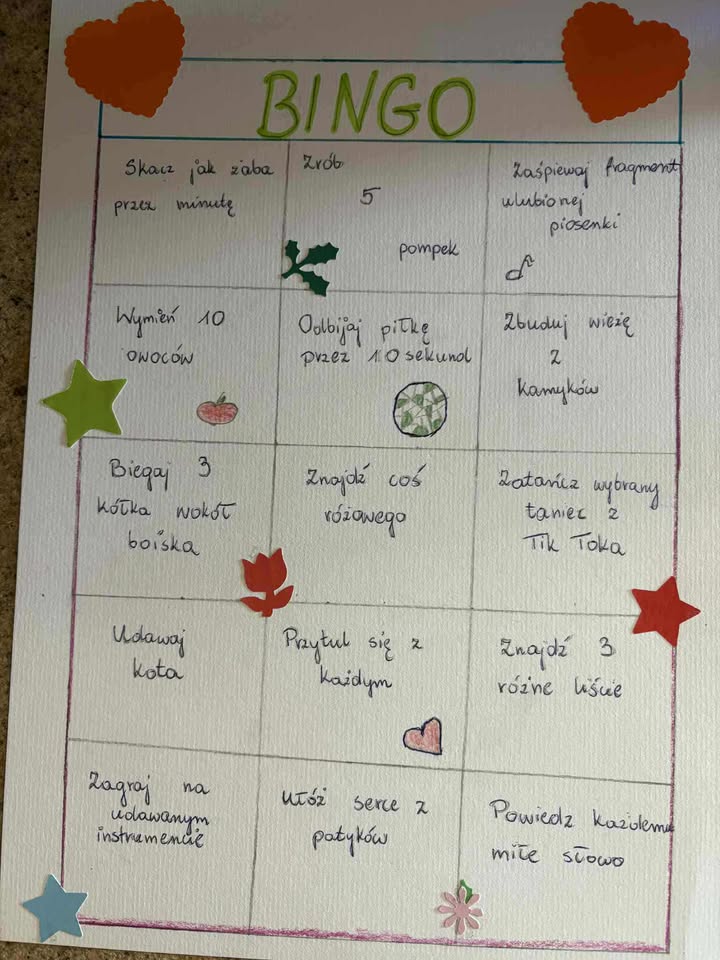 BINGO
Skacz jak żaba
przez minutę
Zrób
5
pompek
Zaśpiewaj fragment
ulubionej
piosenki
Wymień 10
owoców
Odbijaj piłkę
przez 10 sekund
Zbuduj wieżę
z
kamyków
Biegaj 3
kółka wokół
boiska
Znajdź coś
różowego
Zatańcz wybrany
taniec z
Tik Toka
Udawaj
kota
Przytul się z
każdym
Znajdź 3
różne liście
Zagraj na
udawanym
instrumencie
Ułóż serce z
patyków
Powiedz każdemu
miłe słowo